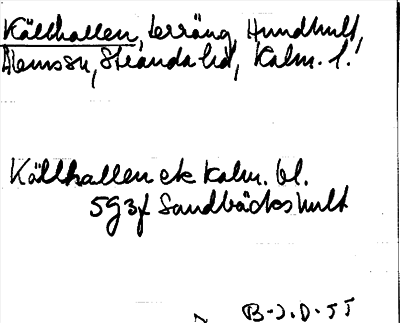 Källhallen, terräng, Hundhult,
Stranda hd, Kalm. l.
Källhallen ek kalm. bl.
5G3f Sandbäckshult
B-J.D-JJ